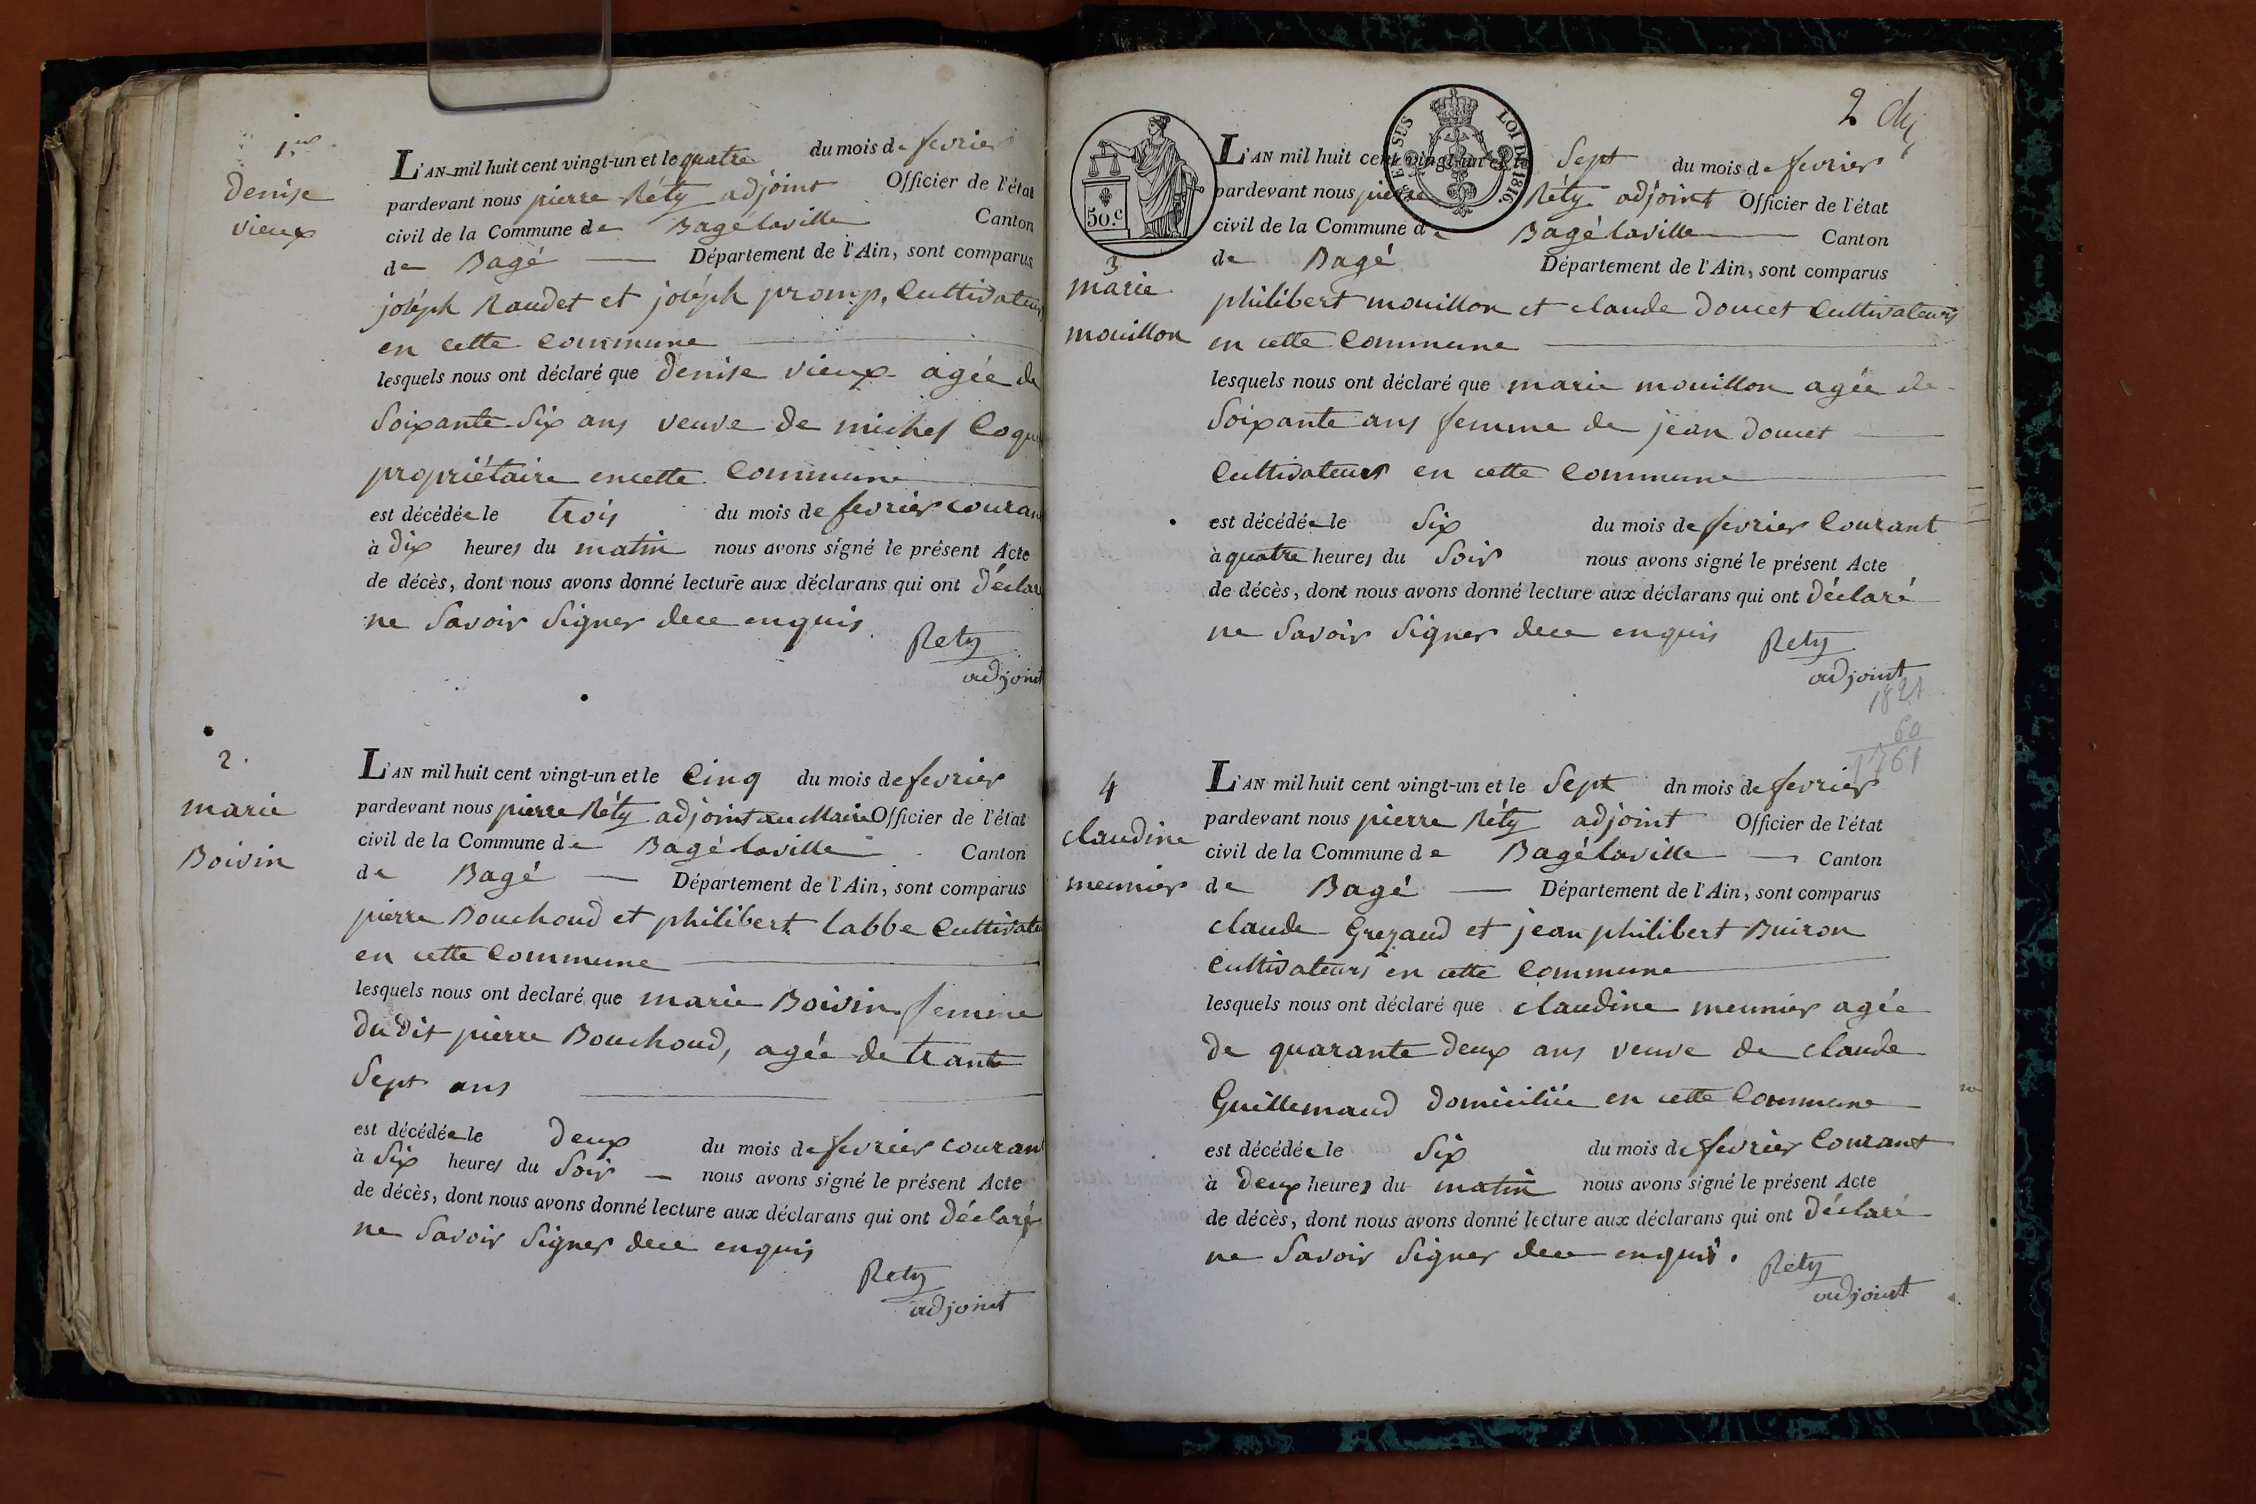 1.er
denise
vieux
L'AN mil huit cent vingt-un et le quatre du mois de fevrier
pardevant nous pierre Réty adjoint Officier de l'état
civil de la Commune de Bagélaville Canton
de Bagé Département de l'Ain, sont comparus
joséph Raudet et joséph promp, Cultivateurs
en cette Commune
lesquels nous ont déclaré que denise vieux agée de
Soixante Six ans veuve de michel
propriétaire encette Commune
est décédée le trois du mois de fevrier couran
à dix heures du matin nous avons signé le présent Acte
de décès, dont nous avons donné lecture aux déclarans qui ont déclar
ne Savoir Signer dece enquis
Rety
adjoint
2.
marie
Boivin
L'AN mil huit cent vingt-un et le Cinq du mois de fevrier
pardevant nous pierre Réty adjoint au Maire Officier de l'état
civil de la Commune de Bagélaville Canton
de Bagé Département de l'Ain, sont comparus
pierre Bouchoud et philibert labbe Cultivate
en cette Commune
lesquels nous ont declaré que marie Boivin femme
du dit pierre Bouchoud, agée de trante
Sept ans
est décédée le deux du mois de fevrier couran
à Six heures du Soir nous avons signé le présent Acte
de décès, dont nous avons donné lecture aux déclarans qui ont déclaré
ne Savoir Signer dece enquis
Rety
adjoint
2
50.c
LOI DE 1816
3
marie
mouillon
L'AN mil huit cent vingt-un et le Sept du mois de fevrier
pardevant nous pierre Réty adjoint Officier de l'état
civil de la Commune de Bagélaville Canton
de Bagé Département de l'Ain, sont comparus
philibert mouillon et claude doucet Cultivateurs
en cette Commune
lesquels nous ont déclaré que marie mouillon agée de
Soixante ans femme de jean doucet
Cultivateurs en cette Commune
est décédée le Six du mois de fevrier Courant
à quatre heures du Soir nous avons signé le présent Acte
de décès, dont nous avons donné lecture aux déclarans qui ont déclaré
ne Savoir Signer dece enquis
Rety
adjoint
1821
60
1761
4
claudine
meunier
L'AN mil huit cent vingt-un et le Sept dn mois de fevrier
pardevant nous pierre Réty adjoint Officier de l'état
civil de la Commune de Bagélaville Canton
de Bagé Département de l'Ain, sont comparus
claude Grezaud et jean philibert Buiron
Cultivateurs en cette Commune
lesquels nous ont déclaré que claudine meunier agée
de quarante deux ans veuve de claude
Guillemaud domiciliée en cette Commune
est décédée le Six du mois de fevrier Courant
à deux heures du matin nous avons signé le présent Acte
de décès, dont nous avons donné lecture aux déclarans qui ont déclaré
ne Savoir Signer dece enquis.
Rety
adjoint